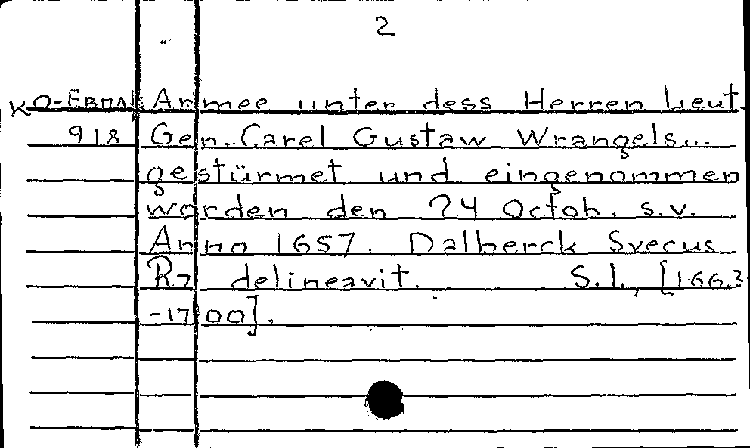 2
KO-EBMA Armee unter dess Herren Leut.
918 Gen. Carel Gustaw Wrangels...
gestürmet und eingenommen
worden den 24 Octob. s.v.
Anno 1657. Dalberck Svecus
delineavit. S.l., [1663
-1700].